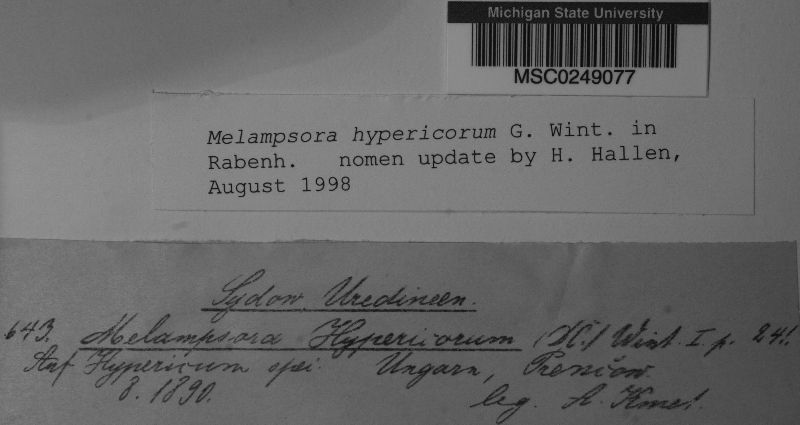 Michigan State University
MSC0249077
Melampsora hypericorum G. Wint. in
Rabenh. nomen update by H. Hallen,
August 1998
Sydow, Uredineen.
643. Melampsora Hypericorum (DC.) Wint. I. p. 241.
Auf Hypericum spei. Ungarn, Prenčow.
8. 1890. leg. A. Kmet.